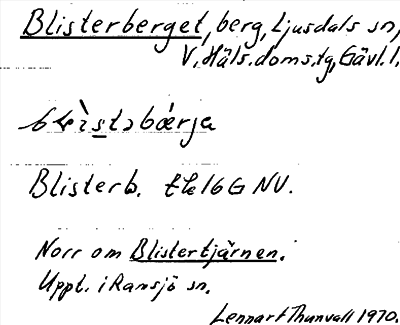 Blisterberget, berg, Ljusdals sn,
V. Häls. doms.tg, Gävl. l.
Blisterb. tk 16 G NV.
Norr om Blistertjärnen.
Uppt. i Ransjö sn.
Lennart Thunvall 1970.